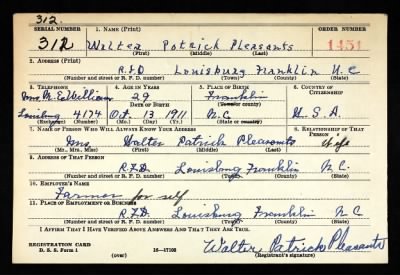 312.
SERIAL NUMBER 1. NAME (Print) ORDER NUMBER
312 Walter Patrick Pleasants 1451
(First) (Middle) (Last)
2. ADDRESS (Print)
R.F.D Louisburg Franklin N.C
(Number and street or R. F. D. number) (Town) (County) (State)
3. TELEPHONE 4. AGE IN YEARS 5. PLACE OF BIRTH 6. COUNTRY OF CITIZENSHIP
Mrs. M. Ed Williams 29 Franklin
DATE OF BIRTH (Town or county)
Louisburg 4174 Oct. 13 1911 N.C U.S.A.
(Exchange) (Number) (Mo.) (Day) (Yr.) (State or country)
7. NAME OF PERSON WHO WILL ALWAYS KNOW YOUR ADDRESS 8. RELATIONSHIP OF THAT PERSON
Mrs Walter Patrick Pleasants Wife
(Mr., Mrs., Miss) (First) (Middle) (Last)
9. ADDRESS OF THAT PERSON
R.F.D. Louisburg Franklin N.C.
(Number and street or R. F. D. number) (Town) (County) (State)
10. EMPLOYER'S NAME
Farmer for self
11. PLACE OF EMPLOYMENT OR BUSINESS
R.F.D. Louisburg Franklin N.C
(Number and street or R. F. D. number) (Town) (County) (State)
I AFFIRM THAT I HAVE VERIFIED ABOVE ANSWERS AND THAT THEY ARE TRUE.
REGISTRATION CARD
D. S. S. Form 1 16—17105 Walter Patrick Pleasants
(over) (Registrant's signature)